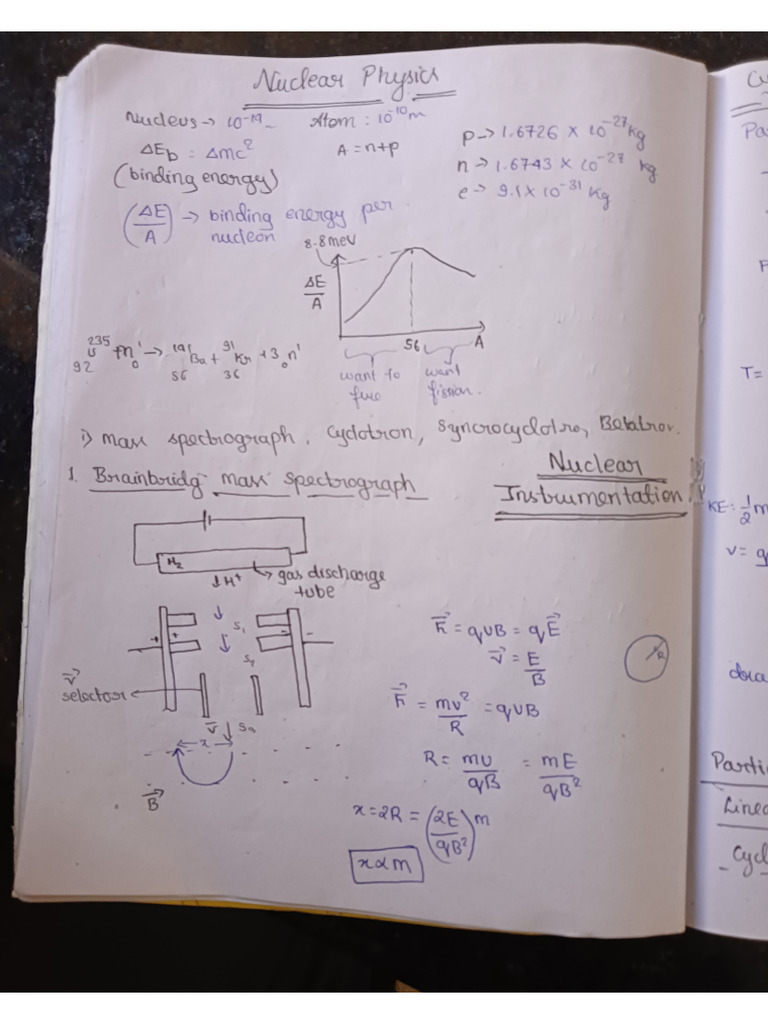 Nuclear Physics
Nucleus → 10⁻¹⁴m Atom : 10⁻¹⁰m
p → 1.6726 × 10⁻²⁷ kg
ΔE_b = Δmc² A = n+p
n → 1.6743 × 10⁻²⁷ kg
(binding energy)
e → 9.1 × 10⁻³¹ kg
(ΔE/A) → binding energy per
nucleon
8.8 meV
ΔE/A
56 A
want to want
fuse fission.
²³⁵₉₂U + ₀n¹ → ¹⁴¹₅₆Ba + ⁹¹₃₆Kr + 3₀n¹
i) mass spectrograph, Cyclotron, Syncrocyclotron, Betatron.
Nuclear
Instrumentation
1. Brainbridg mass spectrograph
H₂
↓H⁺ → gas discharge
tube
S₁
+ + - -
v⃗
selector
v⃗ ↓
x
B⃗
F⃗ = qvB = qE⃗
v⃗ = E/B
R
F⃗ = mv²/R = qvB
R = mv/qB = mE/qB²
x = 2R = (2E/qB²) m
x ∝ m
T=
KE = ½m
v =
Cycl